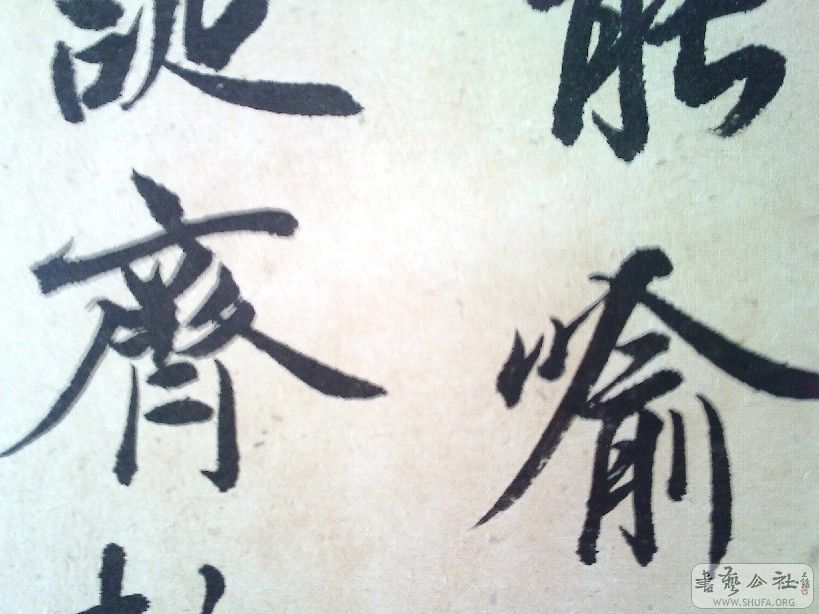 能喻
誕齊
書藝公社
WWW.SHUFA.ORG